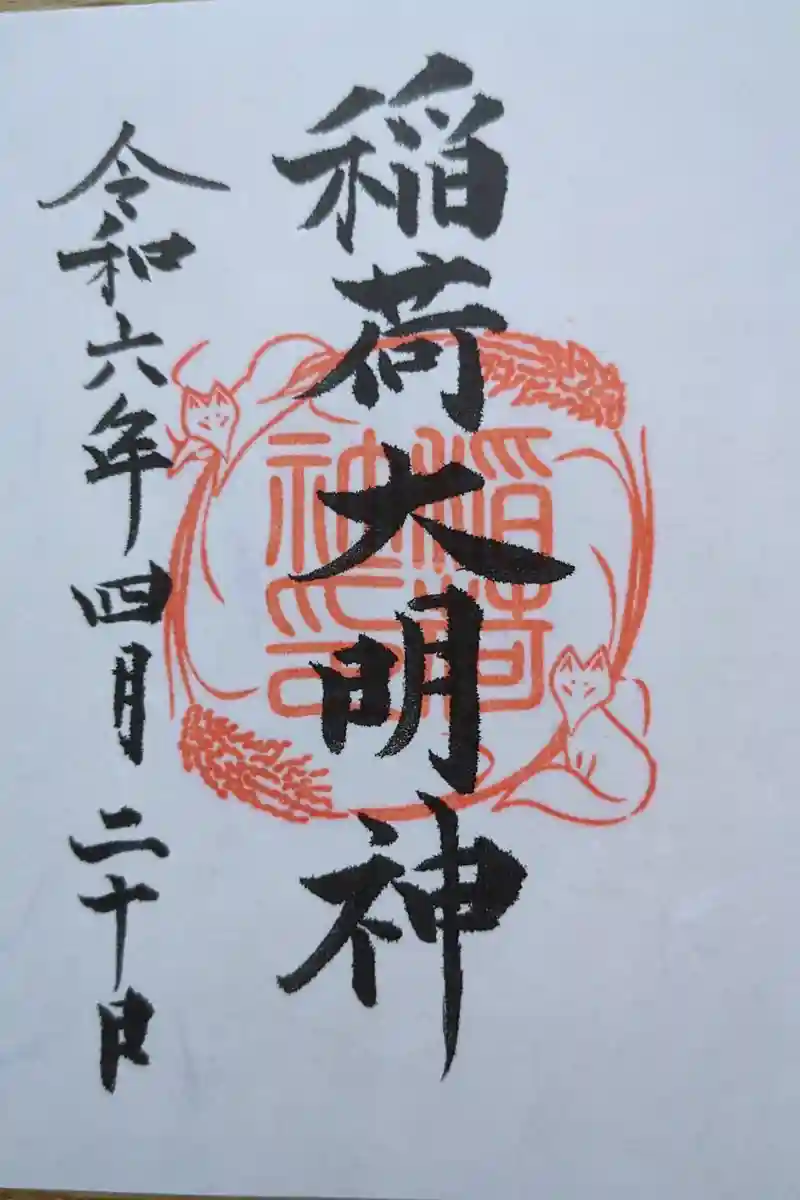 稲荷大明神
稲荷
神印
令和六年四月二十日